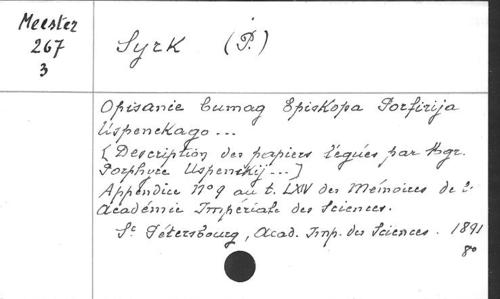 Meester
267
3
Syrk (P.)
Opisanie bumag Episkopa Porfirija
Uspenskago ...
[Description des papiers légués par Mgr.
Porphyre Uspenskij ...]
Appendice N° 9 au t. LXIV des Mémoires de l'
Académie Impériale des Sciences.
St Pétersbourg, Acad. Imp. des Sciences. 1891
8°